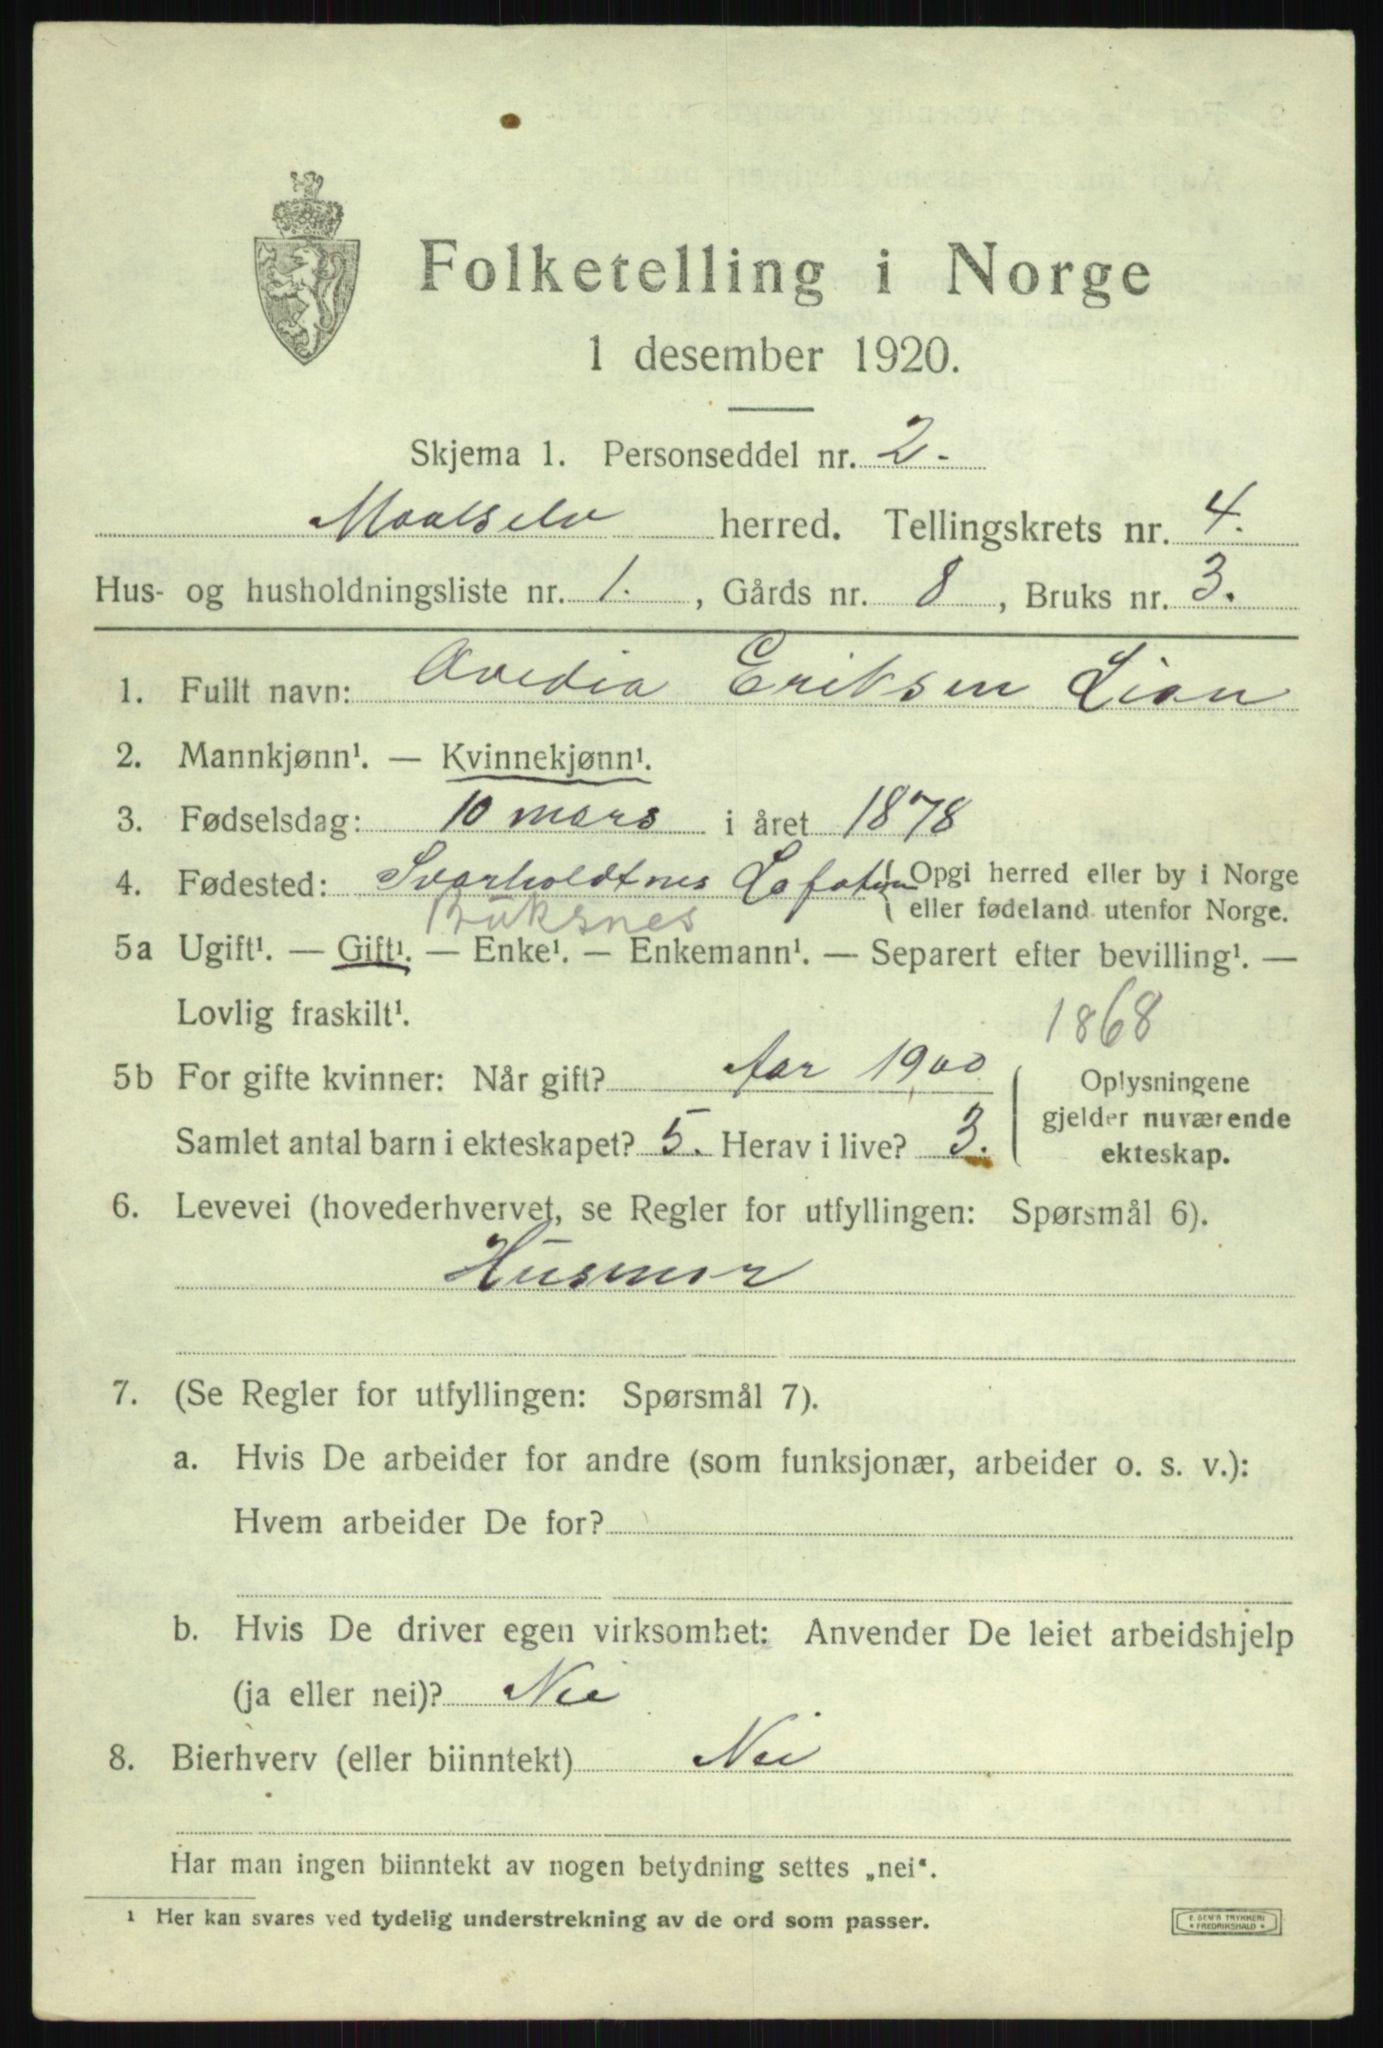 Folketelling i Norge
1 desember 1920.
Skjema 1. Personseddel nr. 2.
Maalselv herred. Tellingskrets nr. 4.
Hus- og husholdningsliste nr. 1. , Gårds nr. 8 , Bruks nr. 3.
1. Fullt navn: Ovedia Eriksen Lian
2. Mannkjønn¹. — Kvinnekjønn¹.
3. Fødselsdag: 10 mars i året 1878
4. Fødested: Svarholdtnes Lofoten Opgi herred eller by i Norge
eller fødeland utenfor Norge.
Buksnes
5a Ugift¹. — Gift¹. — Enke¹. — Enkemann¹. — Separert efter bevilling¹. —
Lovlig fraskilt¹.
1868
5b For gifte kvinner: Når gift? Aar 1900
Samlet antal barn i ekteskapet? 5. Herav i live? 3.
Oplysningene
gjelder nuværende
ekteskap.
6. Levevei (hovederhvervet, se Regler for utfyllingen: Spørsmål 6).
Husmor
7. (Se Regler for utfyllingen: Spørsmål 7).
a. Hvis De arbeider for andre (som funksjonær, arbeider o. s. v.):
Hvem arbeider De for?
b. Hvis De driver egen virksomhet: Anvender De leiet arbeidshjelp
(ja eller nei)? Nei
8. Bierhverv (eller biinntekt) Nei
Har man ingen biinntekt av nogen betydning settes „nei“.
¹ Her kan svares ved tydelig understrekning av de ord som passer.
E. SEM'S TRYKKERI
* FREDRIKSHALD *